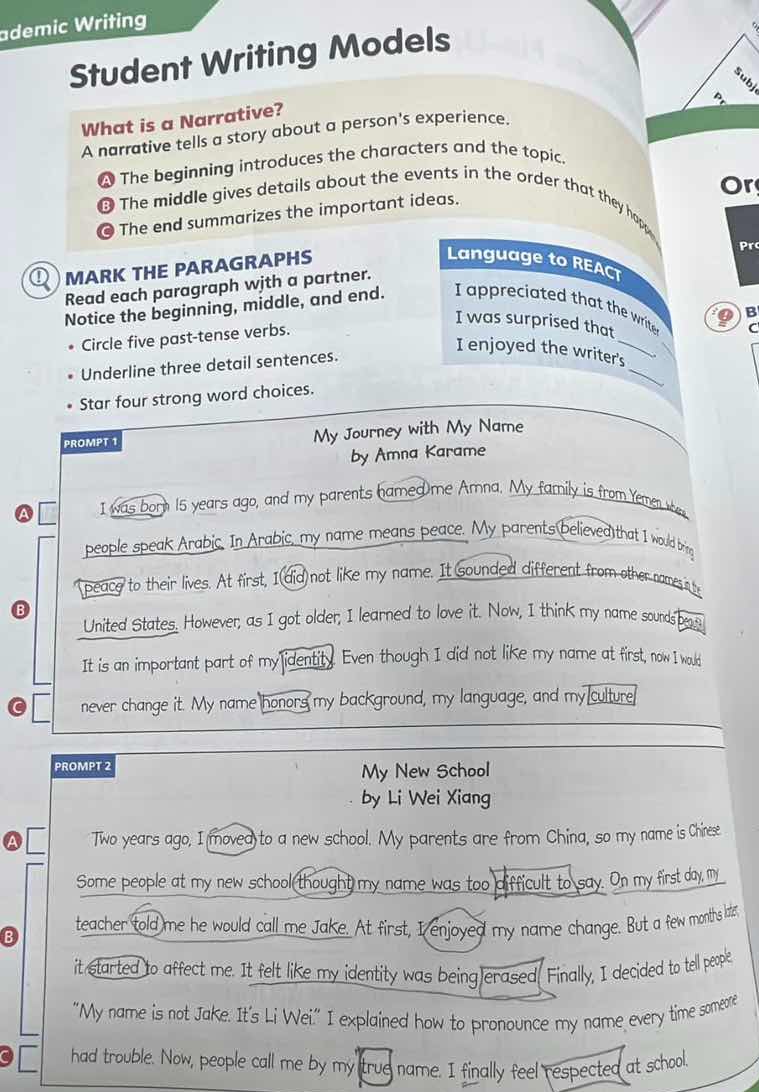 ademic Writing
Student Writing Models
What is a Narrative?
A narrative tells a story about a person's experience.
A The beginning introduces the characters and the topic.
B The middle gives details about the events in the order that they happen
C The end summarizes the important ideas.
MARK THE PARAGRAPHS
Read each paragraph with a partner.
Notice the beginning, middle, and end.
• Circle five past-tense verbs.
• Underline three detail sentences.
• Star four strong word choices.
Language to REACT
I appreciated that the writer
I was surprised that ____.
I enjoyed the writer's ____.
PROMPT 1
My Journey with My Name
by Amna Karame
A
I was born 15 years ago, and my parents named me Amna. My family is from Yemen, where
people speak Arabic. In Arabic, my name means peace. My parents believed that I would bring
peace to their lives. At first, I did not like my name. It sounded different from other names in the
B
United States. However, as I got older, I learned to love it. Now, I think my name sounds
It is an important part of my identity. Even though I did not like my name at first, now I would
C
never change it. My name honors my background, my language, and my culture
PROMPT 2
My New School
by Li Wei Xiang
A
Two years ago, I moved to a new school. My parents are from China, so my name is Chinese.
Some people at my new school thought my name was too difficult to say. On my first day, my
B
teacher told me he would call me Jake. At first, I enjoyed my name change. But a few months later,
it started to affect me. It felt like my identity was being erased. Finally, I decided to tell people,
"My name is not Jake. It's Li Wei." I explained how to pronounce my name every time someone
C
had trouble. Now, people call me by my true name. I finally feel respected at school.
Subj
Pr
Or
Pr
B
C